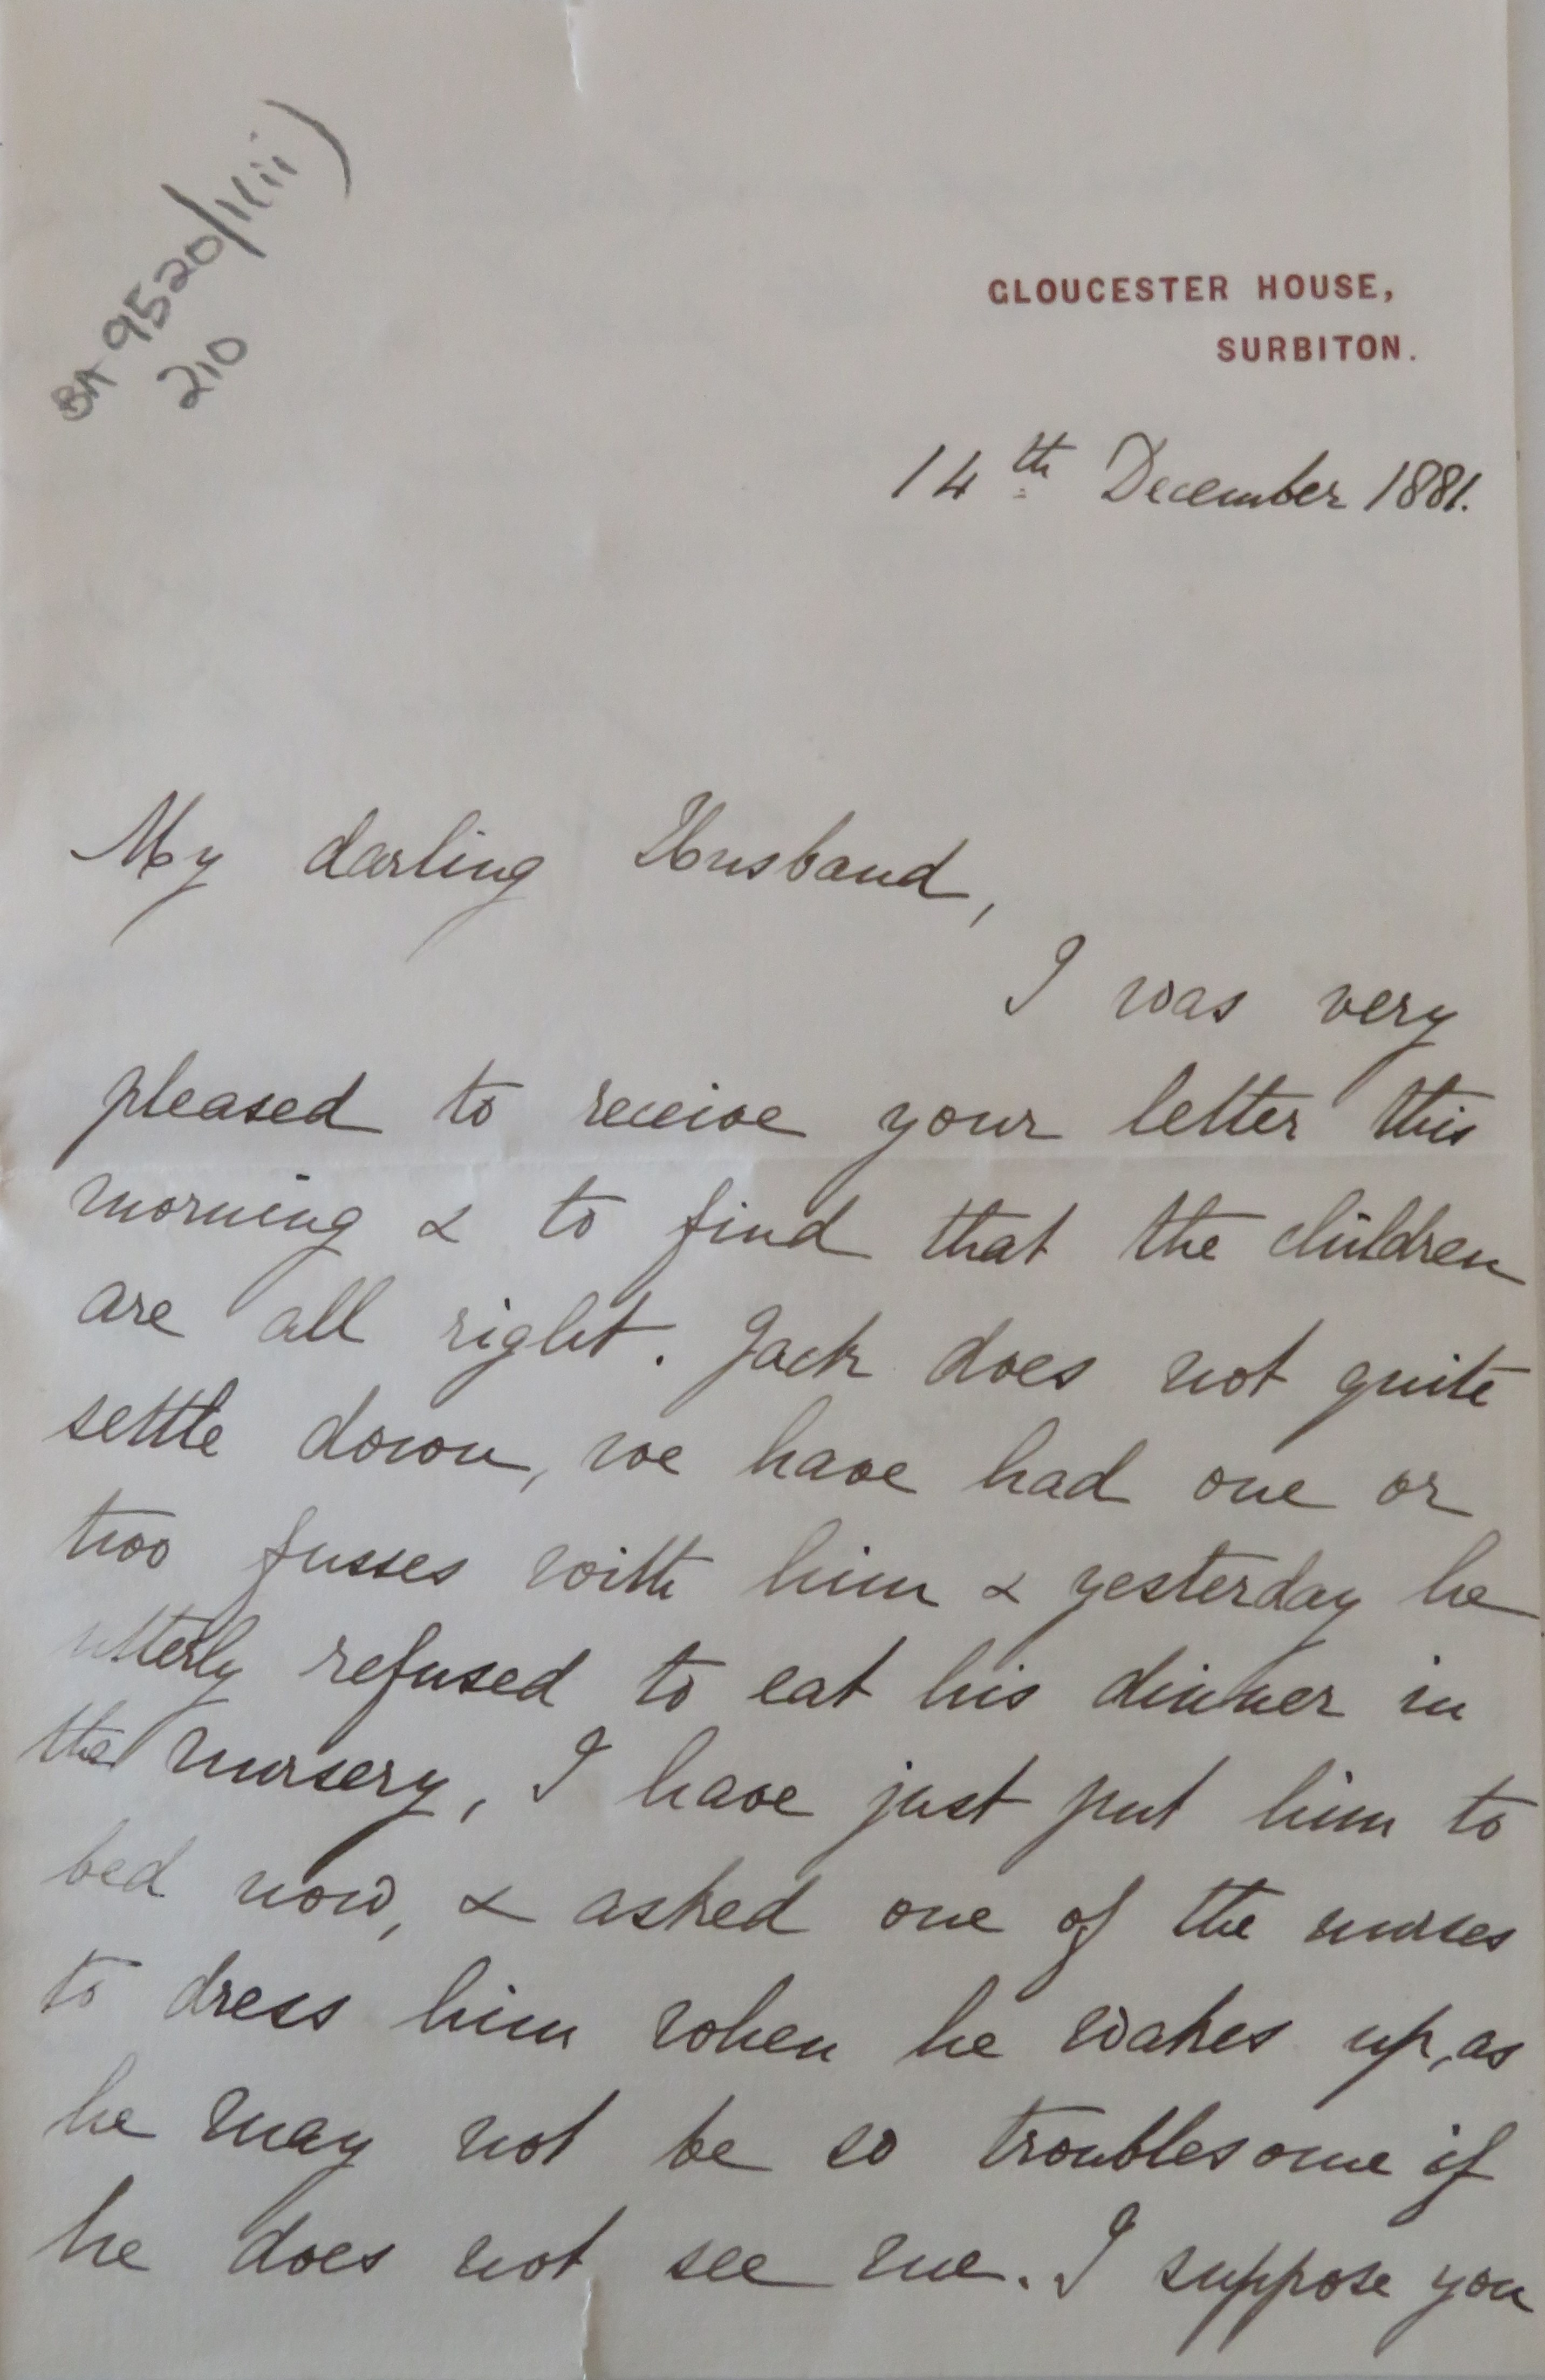 BA 9520/1(ii)
210
GLOUCESTER HOUSE,
SURBITON.
14th December 1881.
My darling Husband,
I was very
pleased to receive your letter this
morning & to find that the children
are all right. Jack does not quite
settle down, we have had one or
two fusses with him & yesterday he
utterly refused to eat his dinner in
the nursery, I have just put him to
bed now, & asked one of the nurses
to dress him when he wakes up, as
he may not be so troublesome if
he does not see me. I suppose you